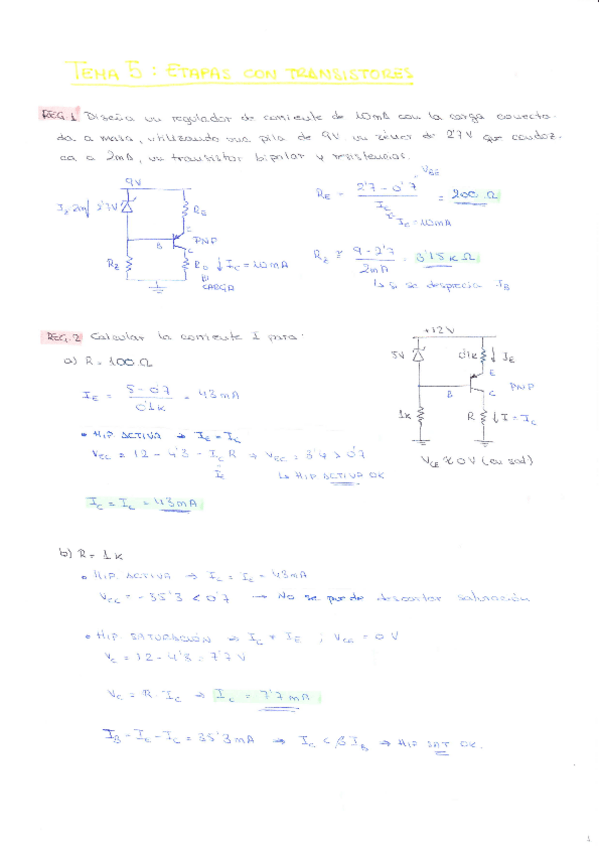 TEMA 5 : ETAPAS CON TRANSISTORES
REG.1 Diseña un regulador de corriente de 10mA con la carga conecta-
da a masa, utilizando una pila de 9V un zéner de 2'7V que conduz-
ca a 2mA, un transistor bipolar y resistencias.
9V
Iz 2mA 2'7V
E
PNP
B
C
Rz
Ic = 10mA
CARGA
VEC
RE = (2'7 - 0'7) / Ic = 200 Ω
Ic = 10mA
Rz = (9 - 2'7) / 2mA = 3'15 KΩ
↳ si se desprecia IB
REG.2 Calcular la corriente I para:
a) R = 100 Ω
IE = (5 - 0'7) / 0'1K = 43mA
• HIP. ACTIVA → IE = IC
VEC = 12 - 4'3 - IC R → VEC = 3'4 > 0'7
IE
↳ HIP ACTIVA OK
IC = IE = 43mA
+12V
5V
0'1K
IE
E
PNP
B
C
1K
R
I = IC
VCE ≈ 0V (en sat)
b) R = 1K
• HIP. ACTIVA → IC = IE = 43mA
VEC = -35'3 < 0'7 → No se puede descartar saturación
• HIP. SATURACIÓN → IC ≠ IE ; VCE = 0V
VC = 12 - 4'3 = 7'7V
VC = R · IC → IC = 7'7mA
IB = IE - IC = 35'3mA → IC < βIB → HIP SAT OK.
1